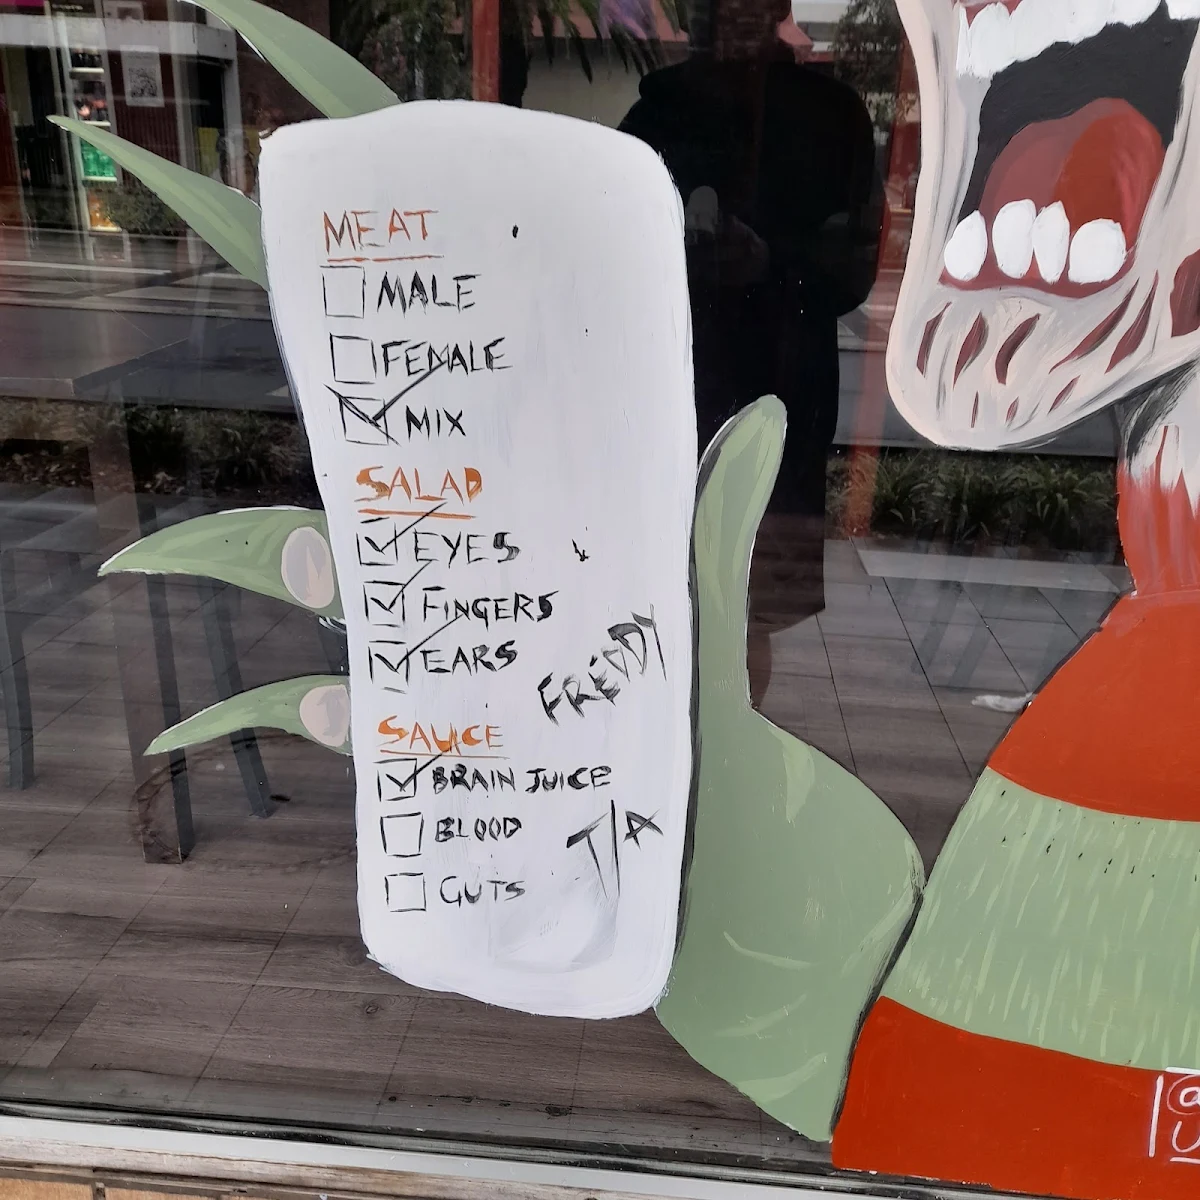 MEAT
MALE
FEMALE
MIX
SALAD
EYES
FINGERS
EARS
FREDDY
SAUCE
BRAIN JUICE
BLOOD
T/A
GUTS
@